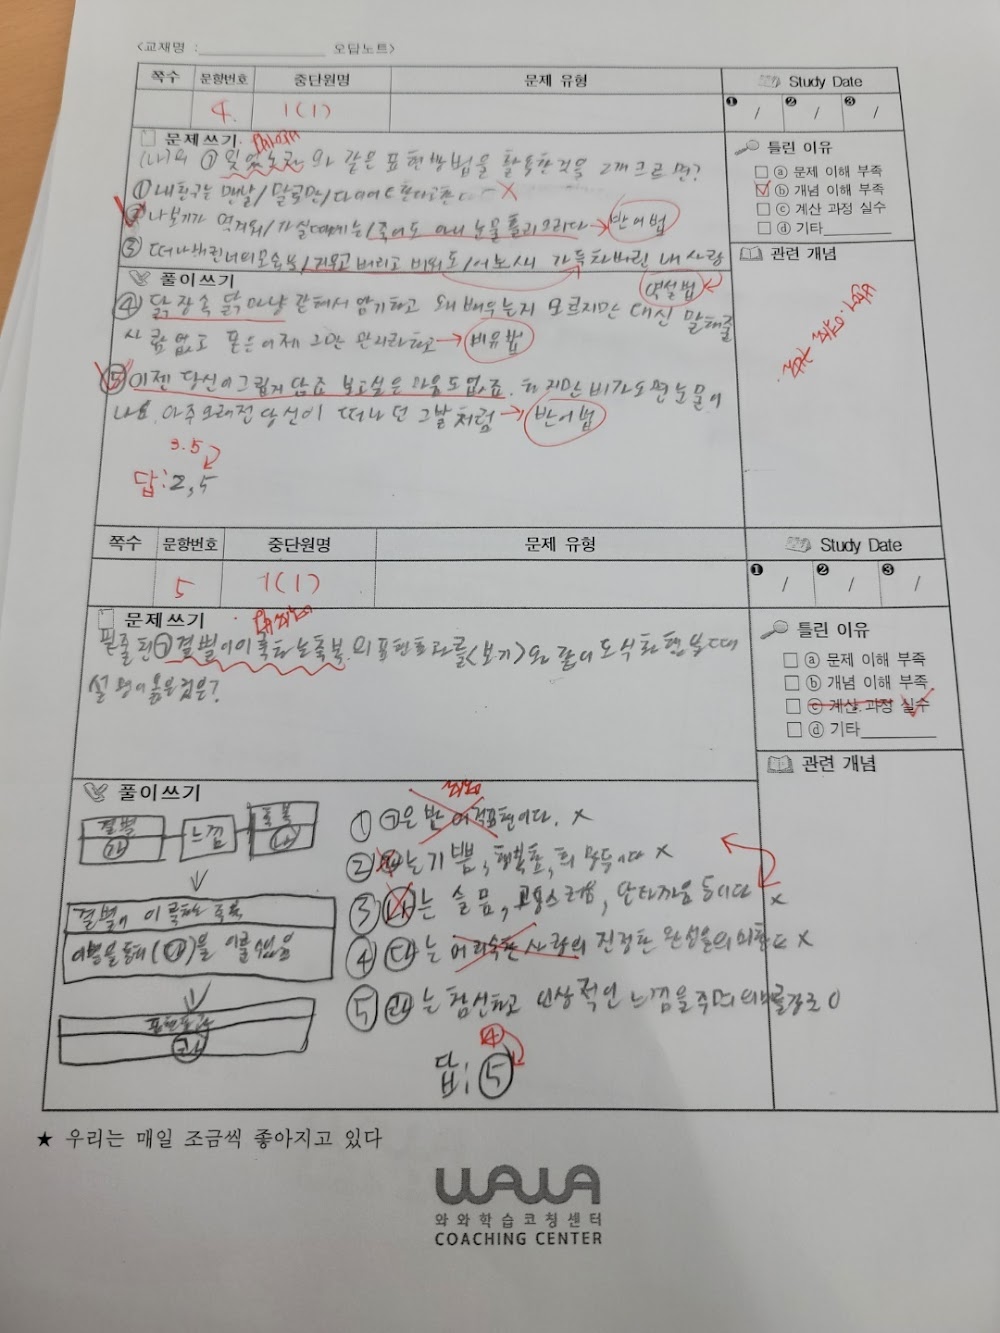 <교재명 : 오답노트>
쪽수 문항번호 중단원명 문제 유형 Study Date
4. 1(1) ❶ / ❷ / ❸ /
문제쓰기 틀린 이유
(나)의 ㉠잊었노라 와 같은 표현방법을 활용한것을 2개 고르면?
ⓐ 문제 이해 부족
ⓑ 개념 이해 부족
ⓒ 계산 과정 실수
ⓓ 기타
① 내친구는 맨날/말로만/다이어트한다고한다 X
② 나보기가 역겨워/가실때에는/죽어도 아니 눈물 흘리오리다 → 반어법
③ 떠나버린너의모습을/지우고 버리고 비워도/어느새 가득차버린 내 사랑
역설법
관련 개념
풀이쓰기
④ 닭장속 닭마냥 갇혀서 암기하고 왜 배우는지 모르지만 대신 말해줄
사람 없고 묻은 어제 그만 관리라하고 → 비유법
⑤ 이젠 당신이그립지 않죠 보고싶은 마음도 없죠. 하지만 비가오면 눈물이
나요. 아주 오래전 당신이 떠나던 그날처럼 → 반어법
3.5
답: 2, 5
쪽수 문항번호 중단원명 문제 유형 Study Date
5 1(1) ❶ / ❷ / ❸ /
문제쓰기 틀린 이유
밑줄 친 ㉠결별이 이룩하는 축복의 표현효과를 <보기>와 같이 도식화했을때
설명이 옳은 것은?
ⓐ 문제 이해 부족
ⓑ 개념 이해 부족
ⓒ 계산 과정 실수
ⓓ 기타
관련 개념
풀이쓰기
결별 느낌 축복
㉮ ㉯
결별이 이룩하는 축복
이별을 통해 (㉰)을 이룰 수 있음
표현효과
㉱
역설
① ㉠은 반어적표현이다. X
② ㉮는 기쁨, 행복함, 희망 등이다 X
③ ㉯는 슬픔, 고통스러움, 안타까움 등이다 X
④ ㉰는 어리숙한 사랑의 진정한 완성을 의미한다 X
⑤ ㉱는 참신하고 인상적인 느낌을 주며 의미를 강조 O
④
답: ⑤
★ 우리는 매일 조금씩 좋아지고 있다
WAWA
와와학습코칭센터
COACHING CENTER